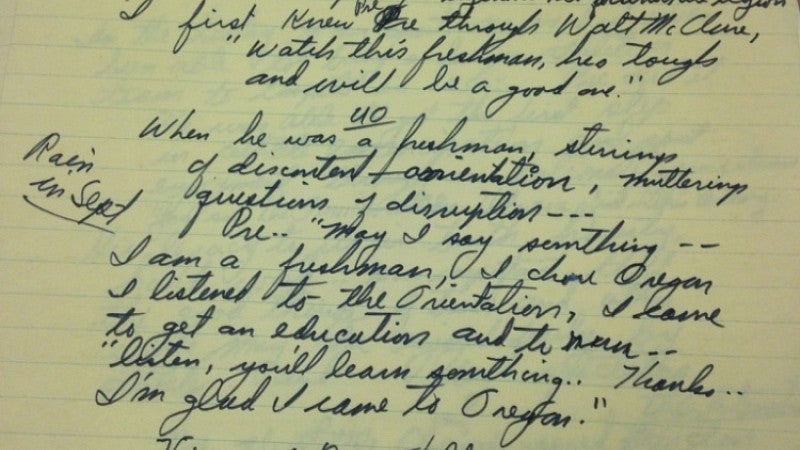 region
I first knew Pre through Walt McClure,
"Watch this freshman, hes tough
and will be a good one."
UO
When he was a freshman, stirrings
Rain
in Sept
of discontent - orientation, mutterings
questions of disruption ---
Pre.. "May I say something --
I am a freshman, I chose Oregon
I listened to the Orientation, I came
to get an education and to run --
"listen, you'll learn something.. Thanks..
I'm glad I came to Oregon."